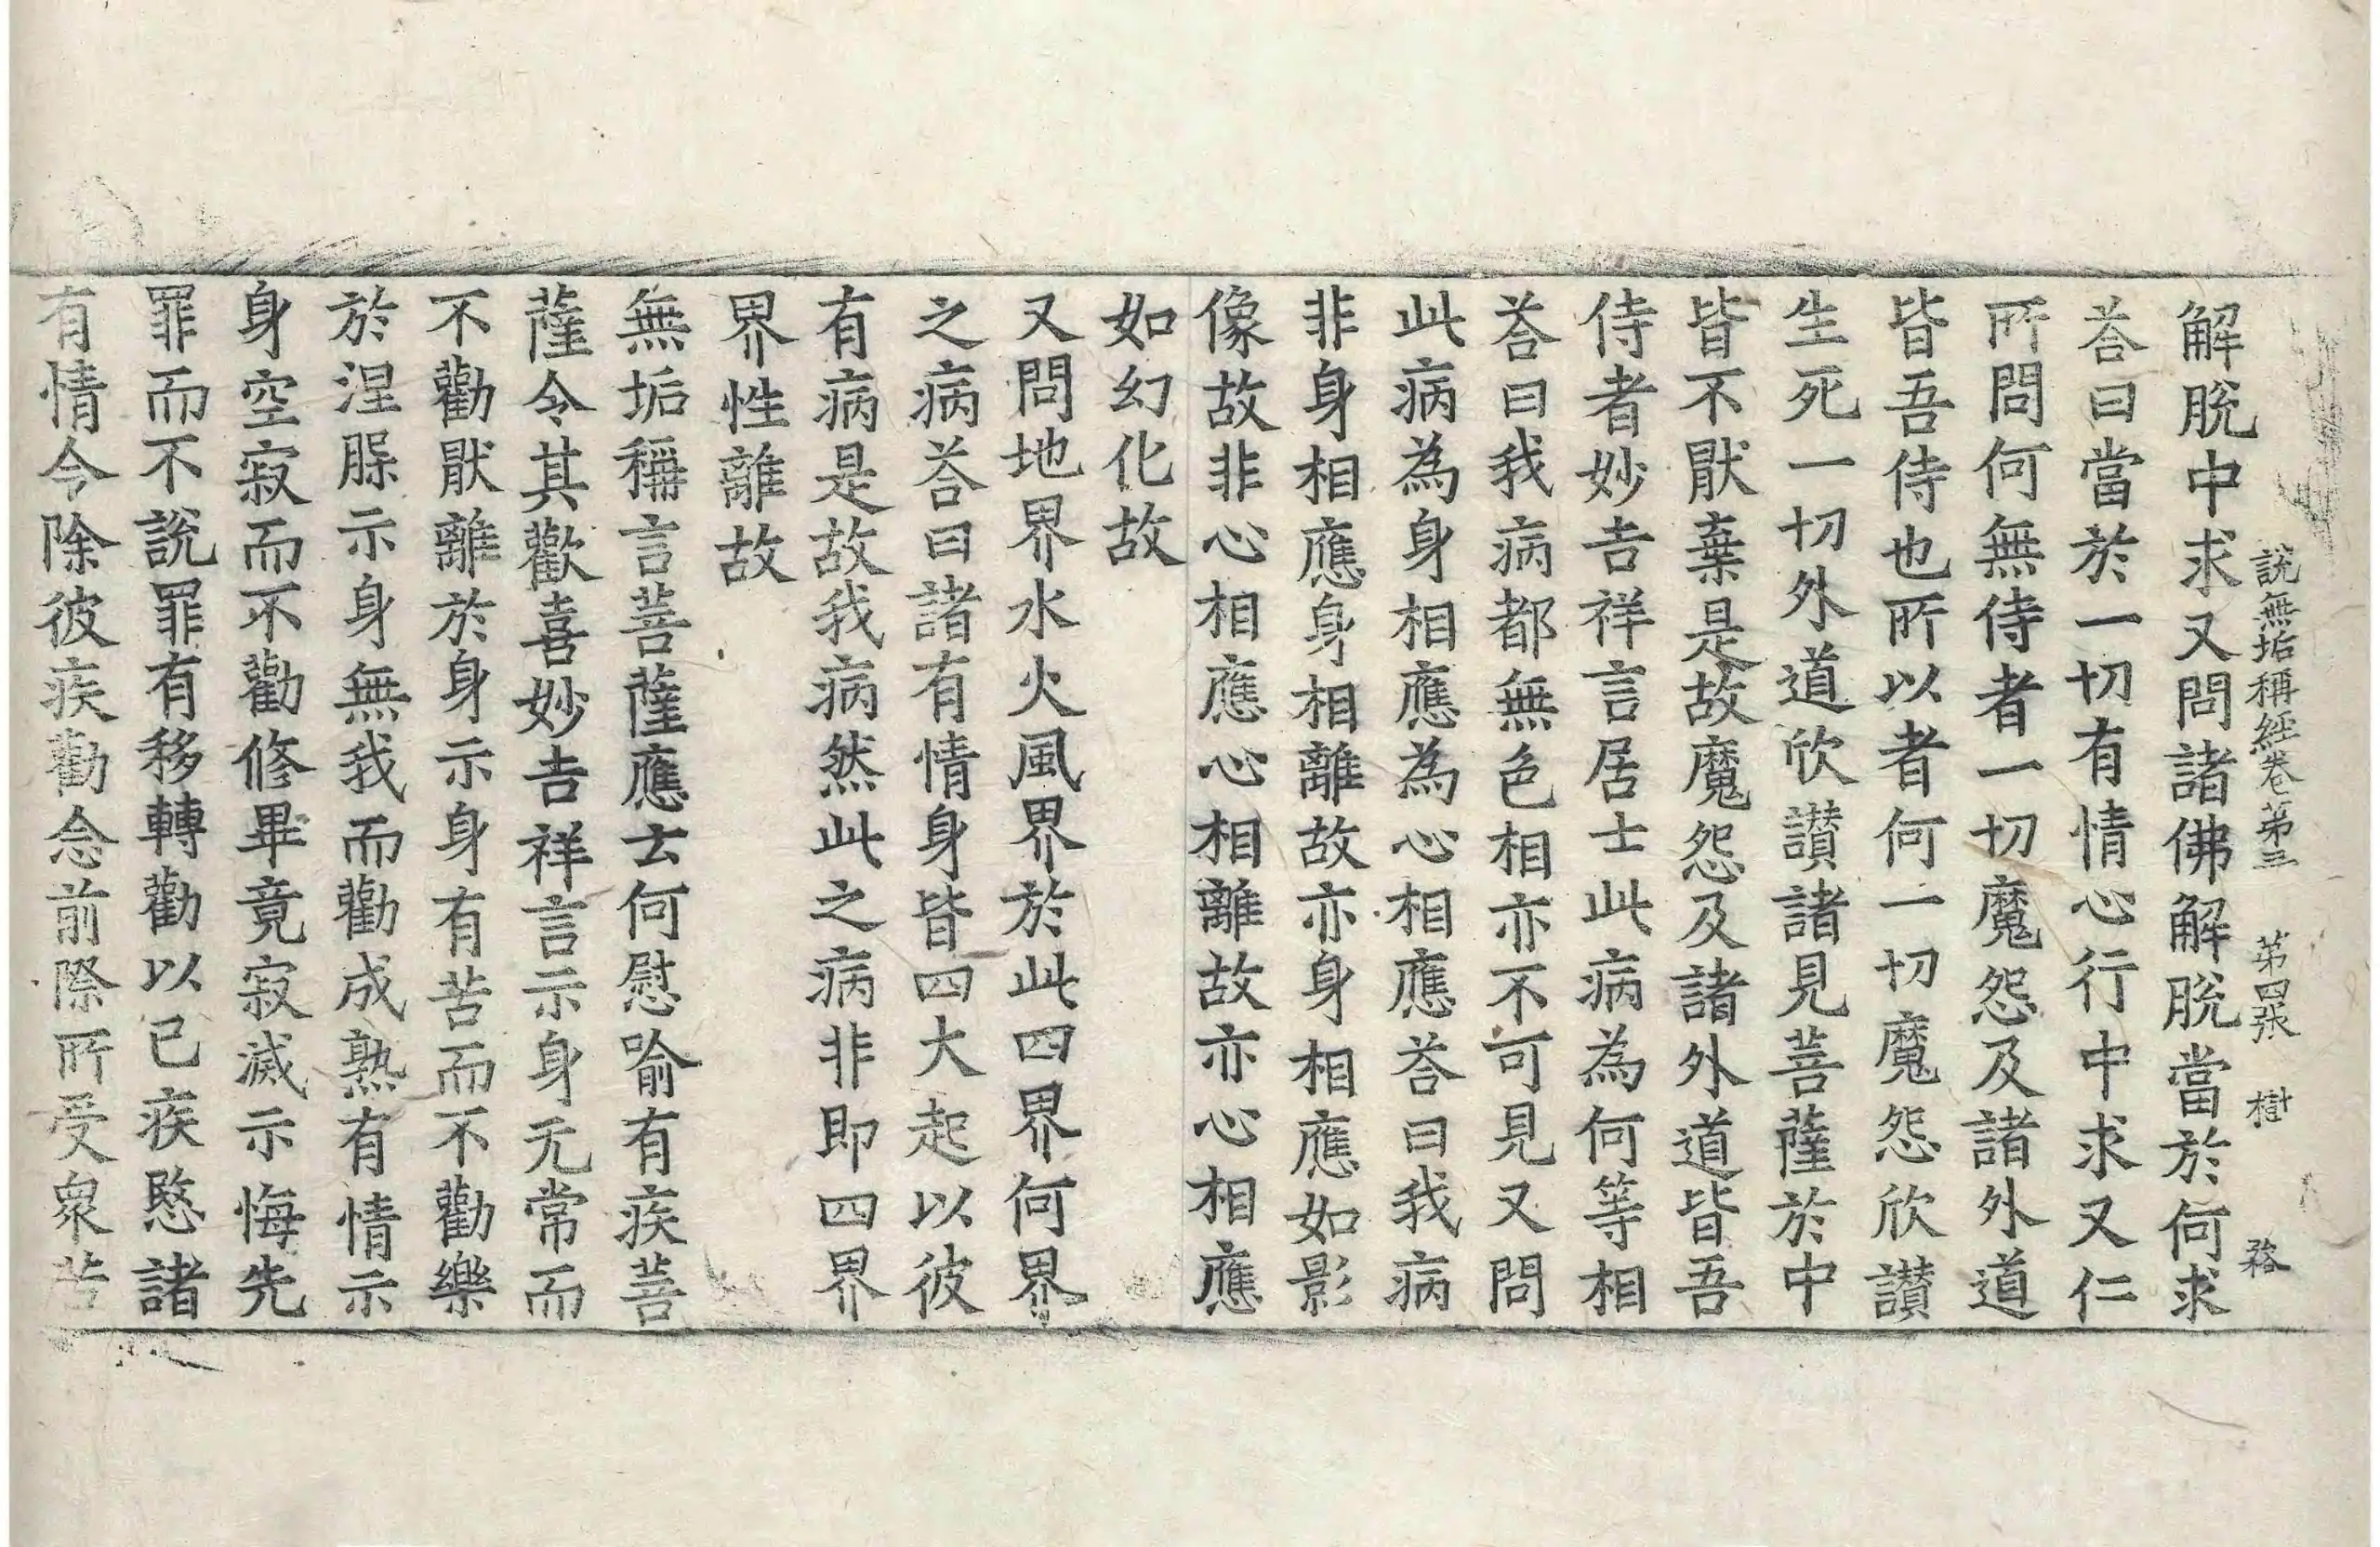 說無垢稱經卷第三 第四张 樹
解脫中求又問諸佛解脫當於何求
荅曰當於一切有情心行中求又仁
所問何無侍者一切魔怨及諸外道
皆吾侍也所以者何一切魔怨欣讃
生死一切外道欣讃諸見菩薩於中
皆不厭棄是故魔怨及諸外道皆吾
侍者妙吉祥言居士此病為何等相
荅曰我病都無色相亦不可見又問
此病為身相應為心相應荅曰我病
非身相應身相離故亦身相應如影
像故非心相應心相離故亦心相應
如幻化故
又問地界水火風界於此四界何界
之病荅曰諸有情身皆四大起以彼
有病是故我病然此之病非即四界
界性離故
無垢稱言菩薩應云何慰喻有疾菩
薩令其歡喜妙吉祥言示身无常而
不勸厭離於身示身有苦而不勸樂
於涅槃示身無我而勸成熟有情示
身空寂而不勸修畢竟寂滅示悔先
罪而不說罪有移轉勸以已疾愍諸
有情令除彼疾勸念前際所受衆苦